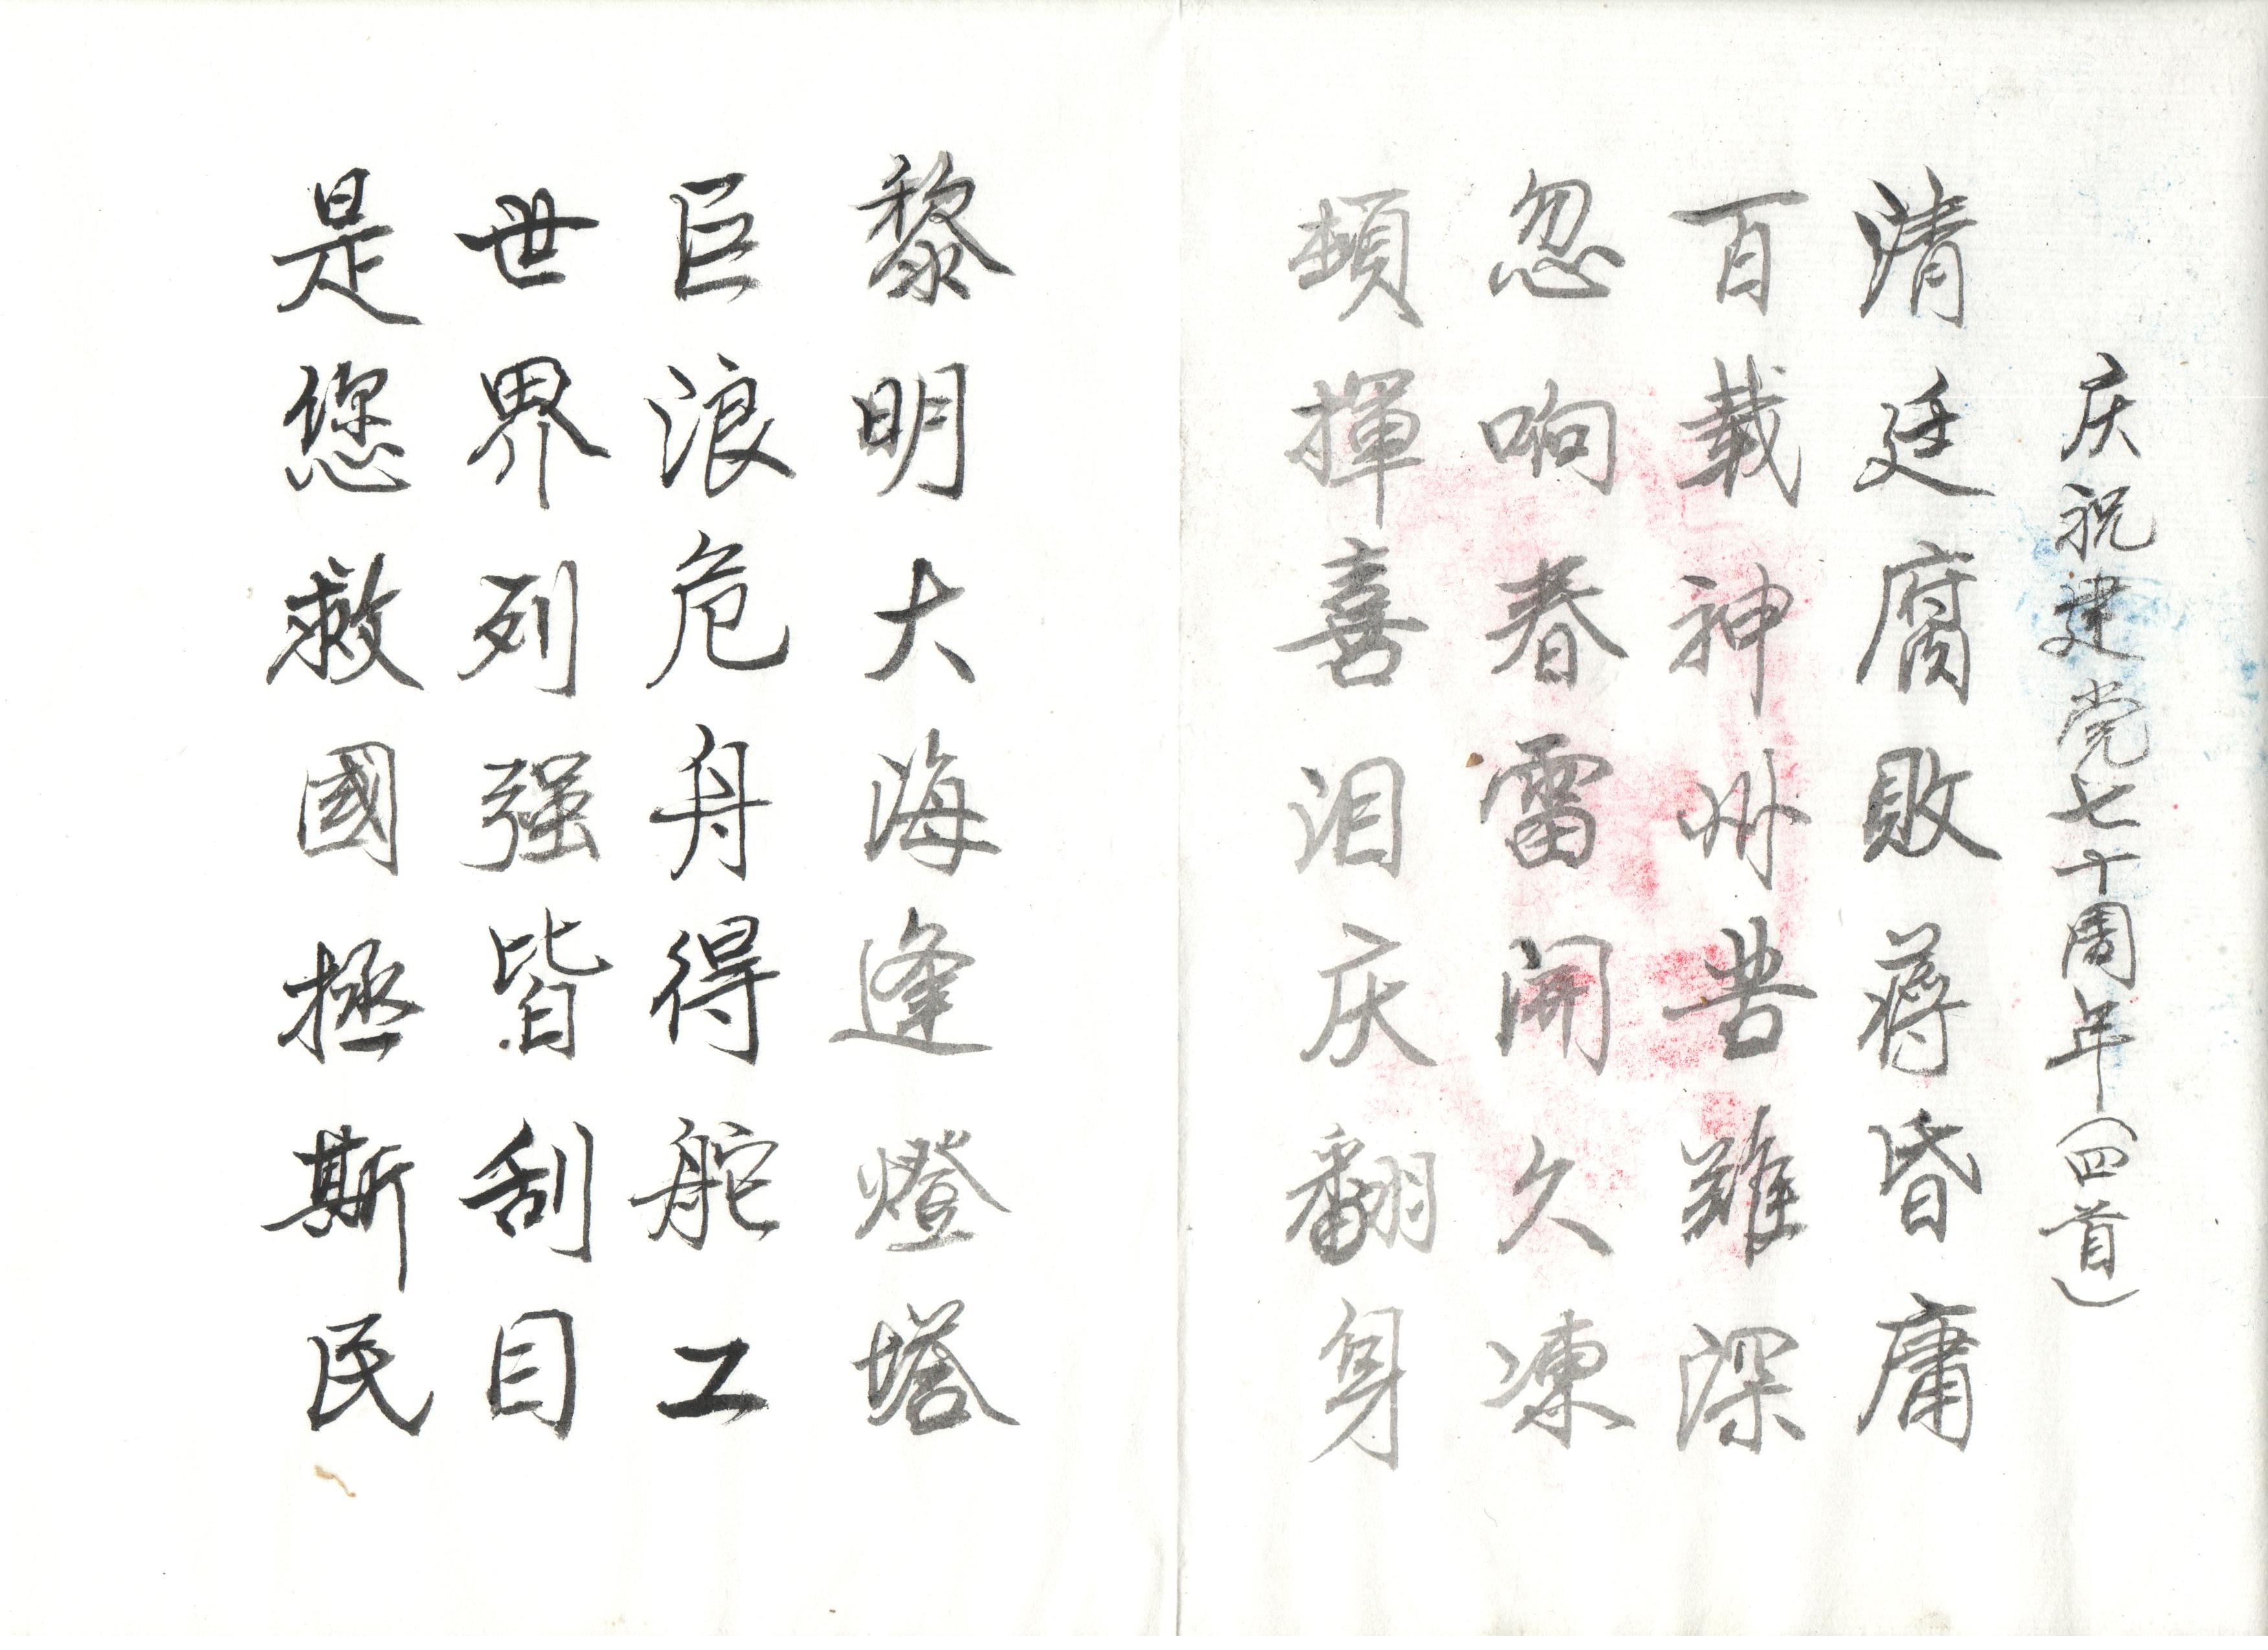 庆祝建党七十周年(四首)
清廷腐敗蒋昏庸
百载神州苦難深
忽响春雷開久凍
頓揮喜泪庆翻身
黎明大海逢燈塔
巨浪危舟得舵工
世界列强皆刮目
是您救國拯斯民